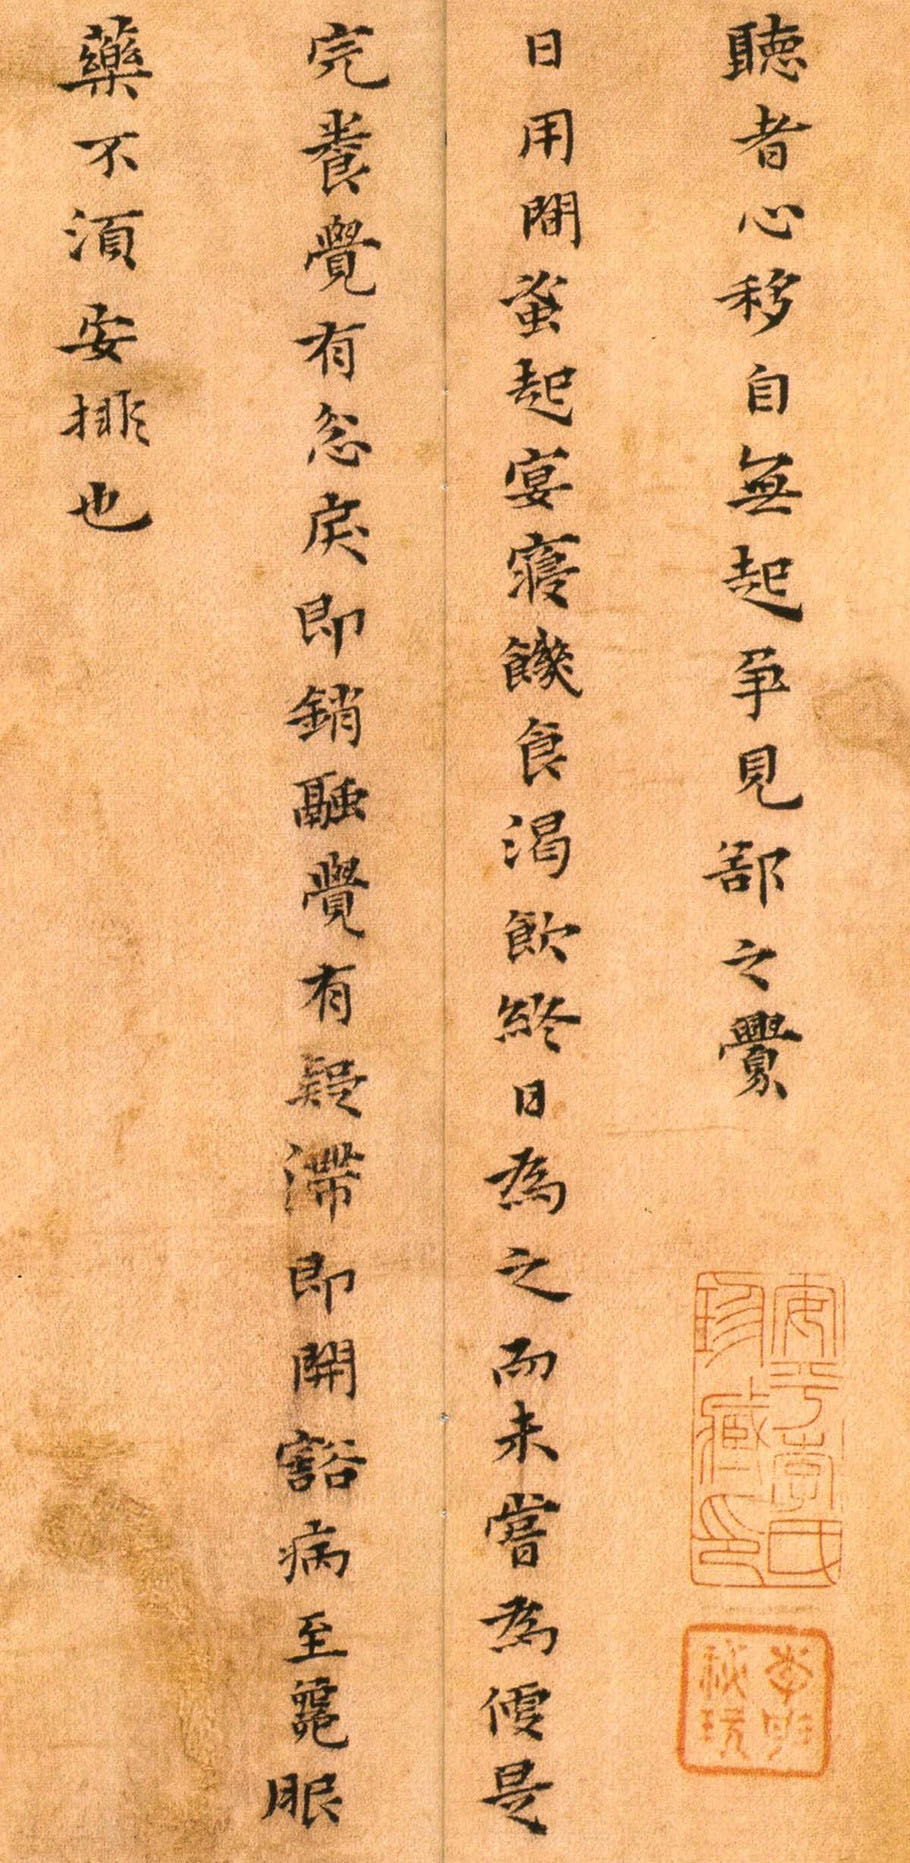 聽者心移自無起爭見郤之釁
日用間蚤起宴寢饑食渴飲終日為之而未嘗為便是
完養覺有忿戾即銷融覺有疑滯即開豁病至麤服
藥不須安排也
安平李氏
珍藏印